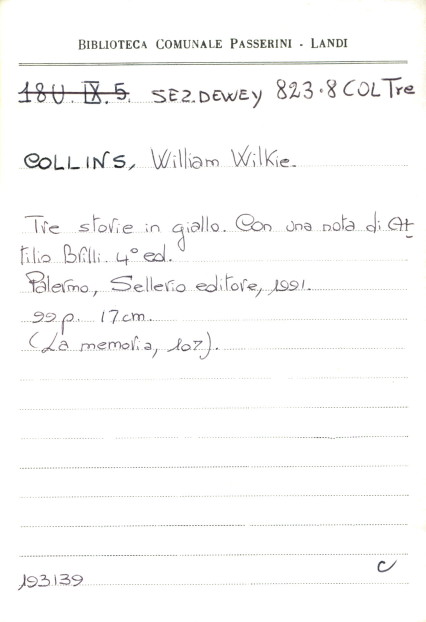 BIBLIOTECA COMUNALE PASSERINI - LANDI
18U. IX. 5. SEZ. DEWEY 823.8 COL Tre
COLLINS, William Wilkie.
Tre storie in giallo. Con una nota di At
tilio Brilli. 4° ed.
Palermo, Sellerio editore, 1991.
99 p. 17 cm.
(La memoria, 107).
193139
C